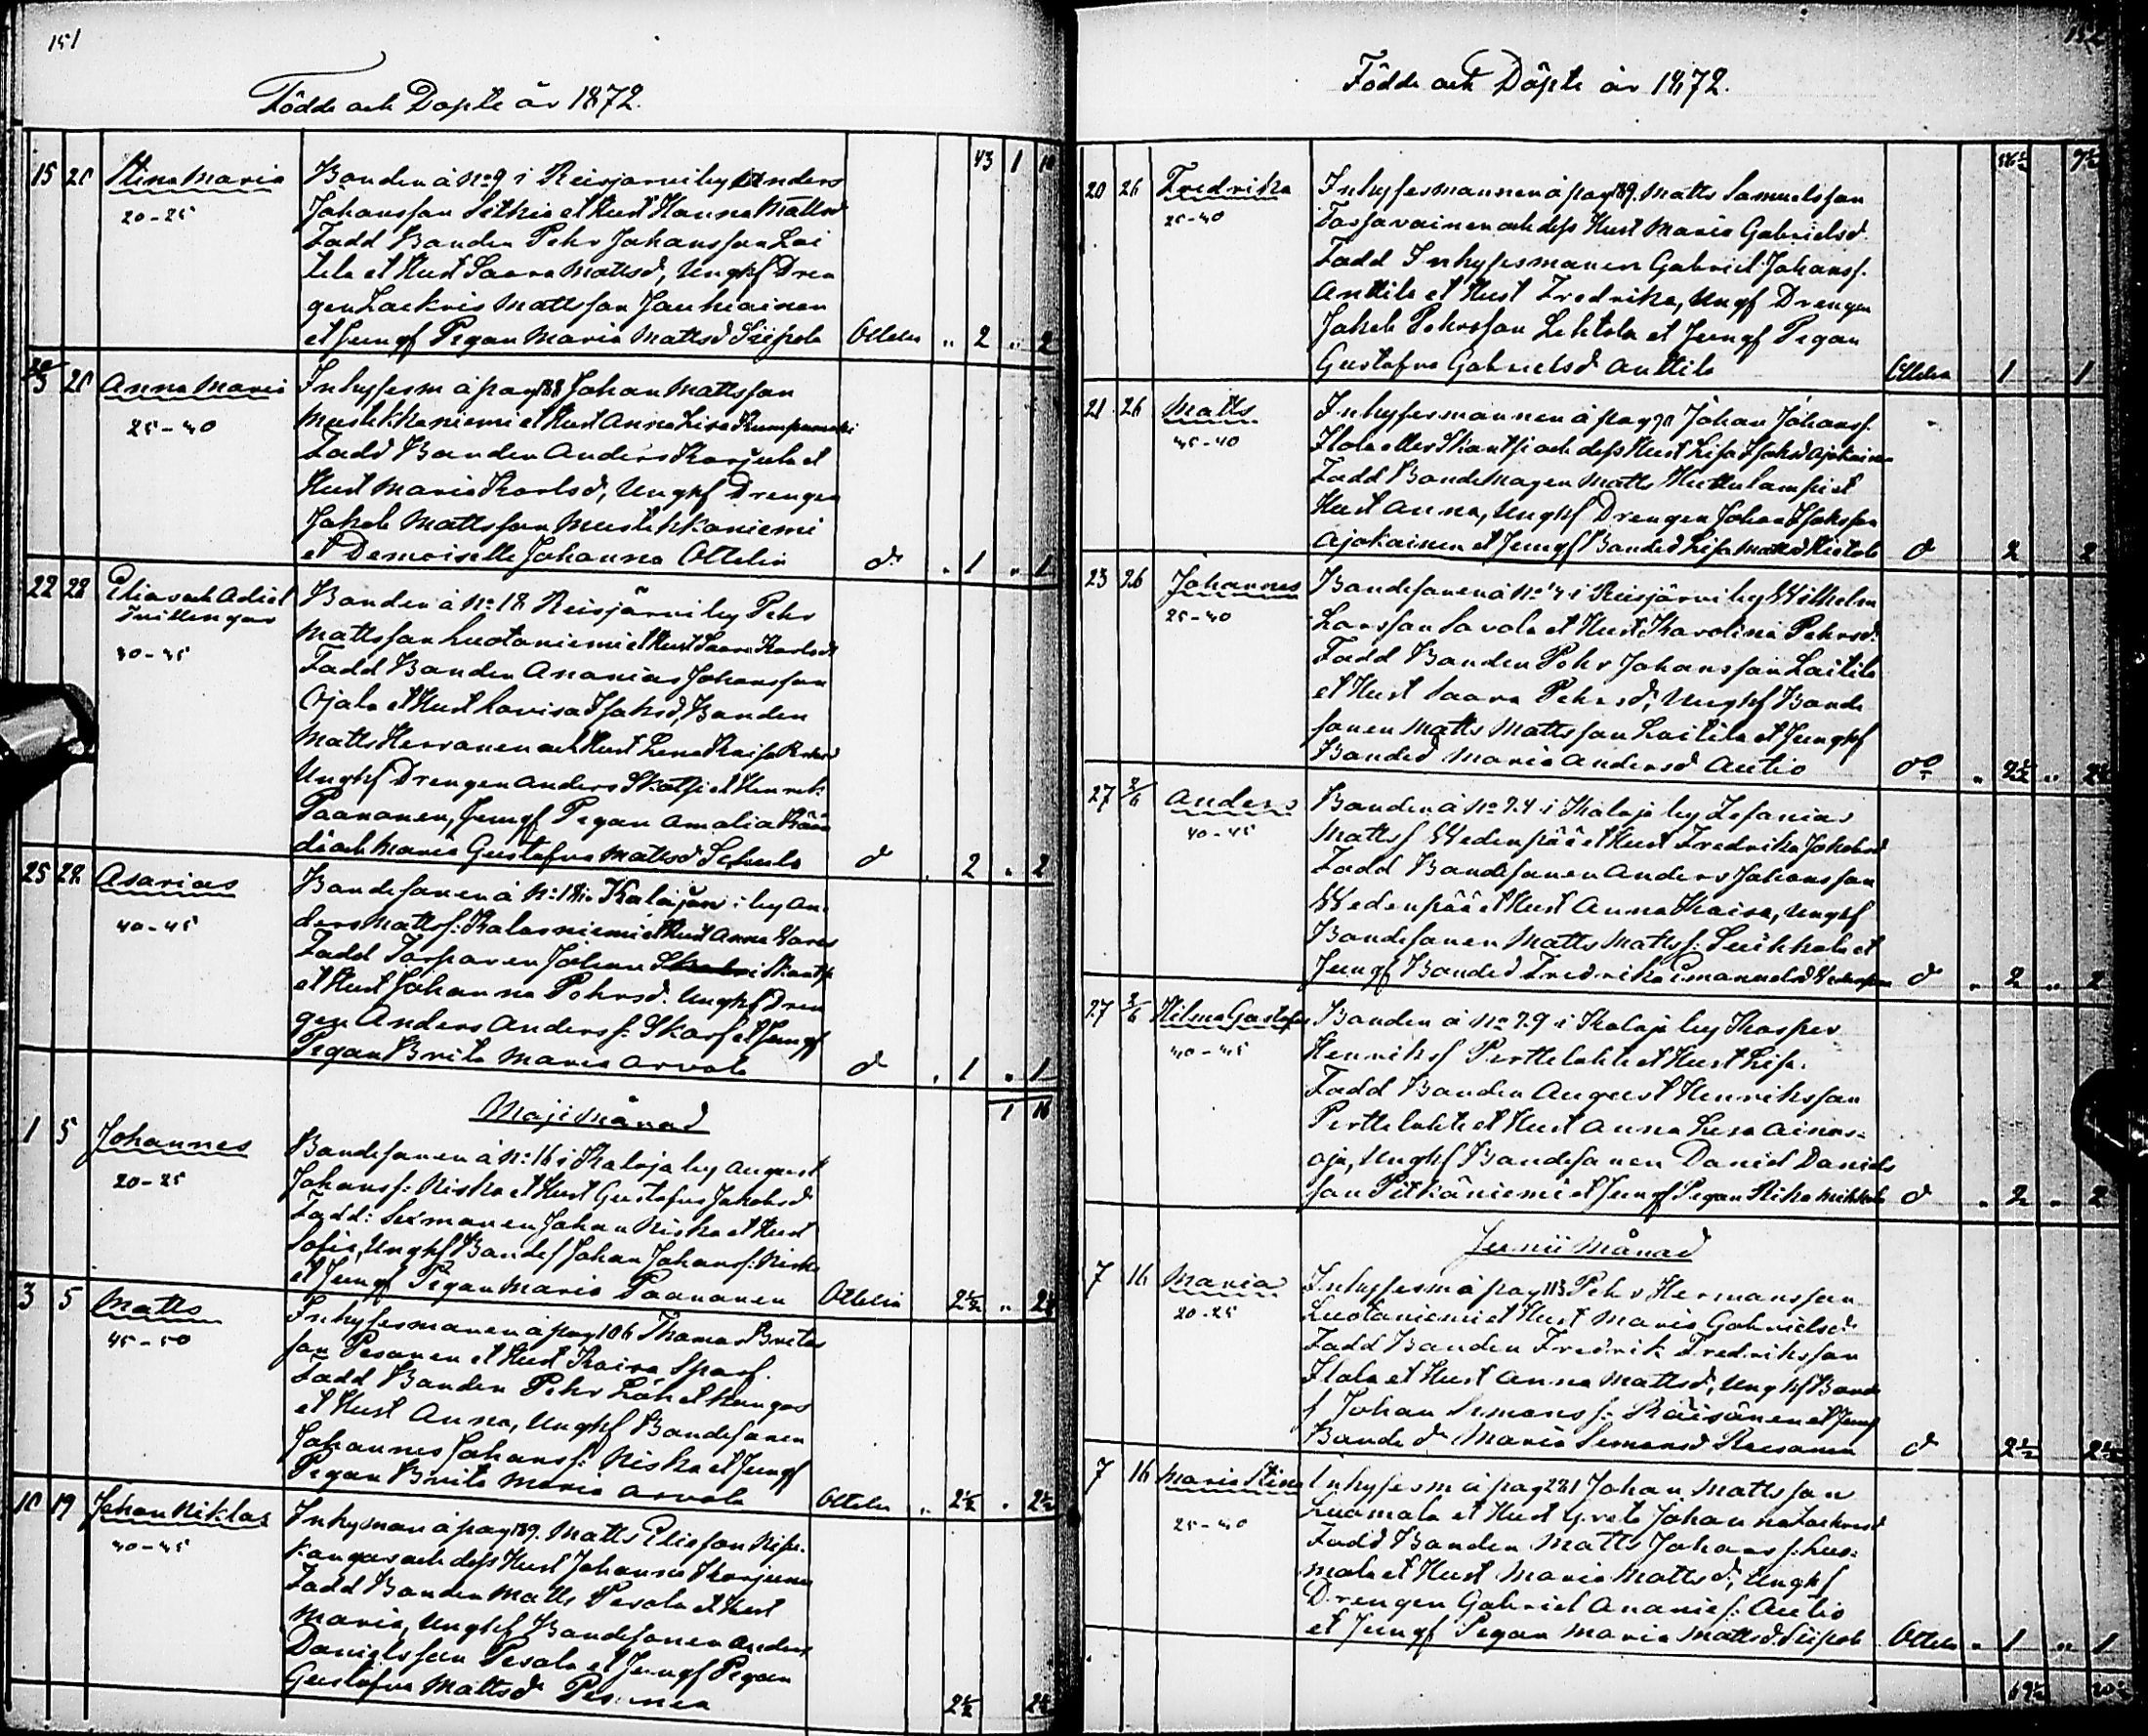 151
Födde och Döpte år 1872.
43 1 10
15 20 Stina Maria Bonden å No 9 i Reisjärvi by Anders
20-25 Johansson Sithia et Hust Hanna Mattsd
Fadd Bonden Pehr Johansson Lai
tila et Hust Saara Mattsd, Unghf Dren
gen Zackris Mattsson Jauhiainen
et Jungf Pigan Maria Mattsd Siipola Ottelin " 2 " 2
20 Anna Maria Inhysesm å pag 188 Johan Mattsson
25-40 Mustikkaniemi et Hust Anna Lisa Kumpumäki
Fadd Bonden Anders Korjula et
Hust Maria Karlsd, Unghf Drengen
Jakob Mattsson Mustikkaniemi
et Demoiselle Johanna Ottelin do " 1 " 1
22 28 Elias och Adiel Bonden å No 18 Reisjärvi by Pehr
Tvillingar Mattsson Luotaniemi et Hust Saara Karlsd
40-45 Fadd Bonden Ananias Johansson
Ojala et Hust Lovisa Isaksd, Bonden
Matts Herranen och Hust Lena Kaisa
Unghf Drengen Anders Skatsi et Henrik
Paananen, Jungf Pigan Amalia
och Maria Gustafva Mattsd d " 2 " 2
25 28 Asarias Bondesonen å No 18 i Kalajärvi by An
40-45 ders Mattss: Kalasniemi et Hust Anna
Fadd Torparen Johan Skantsi
et Hust Johanna Pehrsd. Unghf Dren
gen Anders Anderss: Skarf et Jungf
Pigan Brita Maria Arvola d " 1 " 1
Maji Månad 1 16
1 5 Johannes Bondesonen å No 16 i Kalaja by August
20-25 Johanss: Niska et Hust Gustafva Jakobsd
Fadd: Sexmanen Johan Niska et Hust
Sofia, Unghf Bondes Johan Johanss: Niska
et Jungf Pigan Maria Paananen Ottelin 2½ " 2½
3 5 Matts Inhysesmanen å pag 106 Thomas Brita
45-50 son Pesonen et Hust Kaisa Sparf.
Fadd Bonden Pehr Lähetkangas
et Hust Anna, Unghf Bondesonen
Johannes Johanss: Niska et Jungf
Pigan Brita Maria Arvola Ottelin " 2½ " 2½
10 19 Johan Niklas Inhysman å pag 189. Matts Eliesson
40-45 kangas och dess Hust Johanna Korjunen
Fadd Bonden Matts Pesola et Hust
Maria, Unghf Bondesonen Anders
Danielsson Pesola et Jungf Pigan
Gustafva Mattsd 2½ 2½
152
Födde och Döpte år 1872.
56½ 9½
20 26 Fredrika Inhysesmannen å pag 189. Matts Samuelsson
25-40 Torsavainen och dess Hust Maria Gabrielsd.
Fadd Inhysesmanen Gabriel Johanss.
Anttila et Hust Fredrika, Ungf Drengen
Jakob Pehrsson Lehtola et Jungf Pigan
Gustafva Gabrielsd Anttila Ottelin 1 " 1
21 26 Matts Inhysesmannen å pag 71 Johan Johanss.
45-40 Ilola eller Skantsi och dess Hust Lisa Isaksd Ajokainen
Fadd Bondemagen Matts Huttulampi et
Hust Anna, Unghf Drengen Johan Isaksson
Ajokainen et Jungf Bonded Lisa Mattsd Kietola d 2 2
23 26 Johannes Bondesonen å No 4 i Reisjärvi by Wilhelm
25-40 Larsson Savola et Hust: Karolina Pehrsd:
Fadd Bonden Pehr Johansson Laitila
et Hust Saara Pehrsd, Unghf Bonde
sonen Matts Mattsson Laitila et Jungf
Bonded Maria Andersd Autio do " 2½ " 2½
27 2/6 Anders Bonden å No 24 i Kalaja by Zefanias
40-45 Mattss Wedenpää et Hust Fredrika Jakobsd
Fadd Bondesonen Anders Johansson
Wedenpää et Hust Anna Kaisa, Unghf
Bondesonen Matts Mattss: Leukkala et
Jungf Bonded Fredrika Emanuelsd Wedenpää d " 2 " 2
27 2/6 Hilma Gustafva Bonden å No 29 i Kalaja by Kasper
40-45 Henrikss Perttelahti et Hust Lisa.
Fadd Bonden August Henriksson
Perttelahti et Hust Anna Lisa Ainas-
oja, Unghf Bondesonen Daniel Daniels
son Pitkäniemi et Jungf Pigan Rika Mikkola d " 2 " 2
Junii Månad
7 16 Maria Inhysesm å pag 113 Pehr Hermansson
20-25 Luotaniemi et Hust Maria Gabrielsd:
Fadd Bonden Fredrik Fredriksson
Ilola et Hust Anna Mattsd, Unghf Bonde
s Johan Simonss: Räisänen et Jungf
Bonde d Maria Simonsd Räisänen d 2½ 2½
7 16 Maria Stina Inhysesm å pag 281 Johan Mattsson
25-40 Luomala et Hust Greta Johanna Zackrisd
Fadd Bonden Matts Johanss: Luo-
mala et Hust Maria Mattsd, Unghf
Drengen Gabriel Ananies: Autio
et Jungf Pigan Maria Mattsd. Siipola Ottelin " 1 " 1
69½ 20½